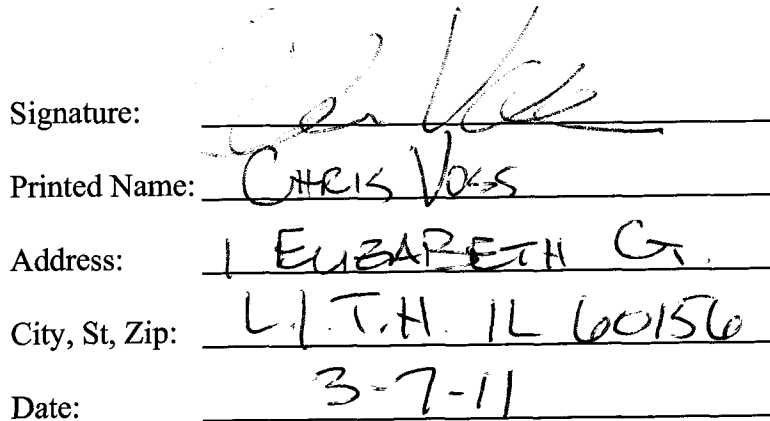 Signature: Chris Voss
Printed Name: CHRIS VOSS
Address: 1 ELIZABETH CT.
City, St, Zip: L.I.T.H. IL 60156
Date: 3-7-11